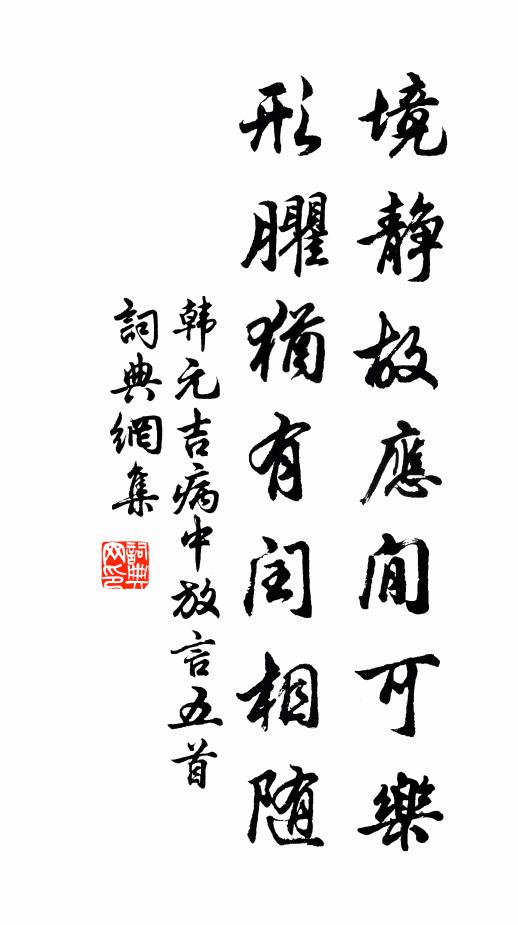 境静故應閒可樂
形臞猶有閏相随
韩元吉病中放言五首
詞典網集
詞典网印